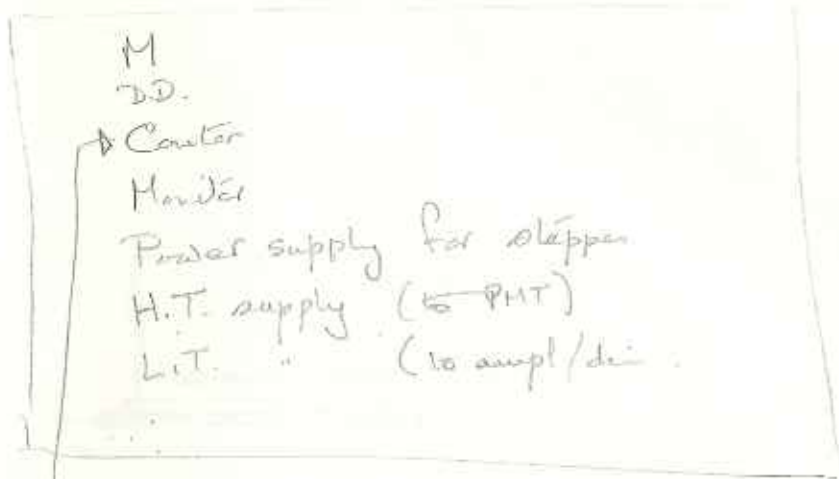 M
D.D.
Counter
Monitor
Power supply for stepper
H.T. supply (to PMT)
L.T. " (to ampl/